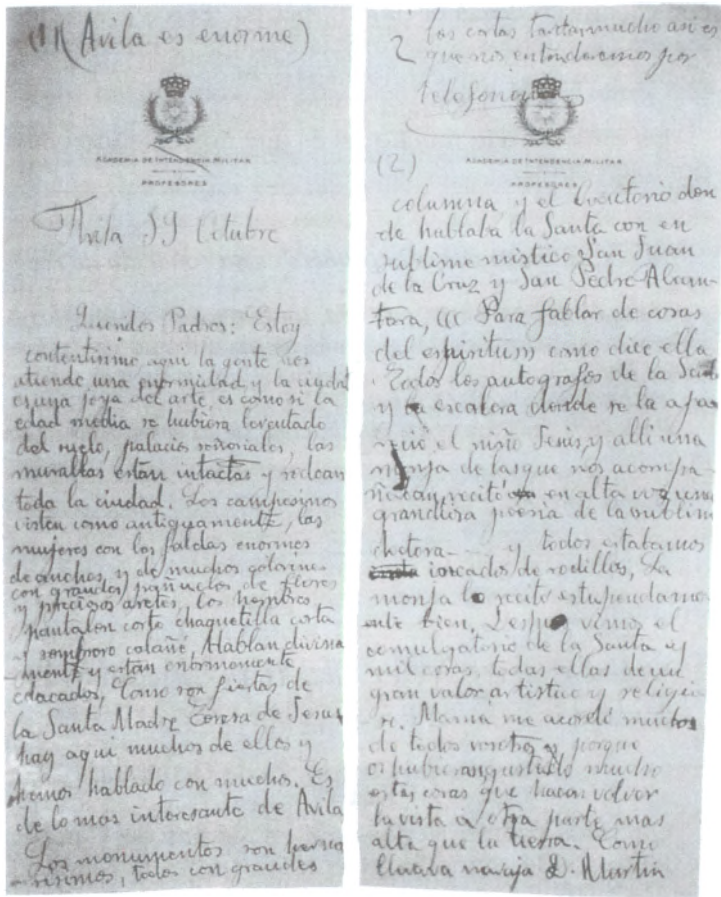 (1) (Avila es enorme)
ACADEMIA DE INTENDENCIA MILITAR
PROFESORES
Avila 19 Octubre
Queridos Padres: Estoy
contentisimo aqui la gente nos
atiende una enormidad y la ciudad
es una joya del arte, es como si la
edad media se hubiera levantado
del suelo, palacios señoriales, las
murallas estan intactas y rodean
toda la ciudad. Los campesinos
visten como antiguamente, las
mujeres con las faldas enormes
de anchas, y de muchos colorines
con grandes pañuelos de flores
y preciosos aretes, los hombres
pantalon corto chaquetilla corta
y sombrero calañé, Hablan divina
mente y estan enormemente
educados, Como son fiestas de
la Santa Madre Teresa de Jesus
hay aqui muchos de ellos y
hemos hablado con muchos. Es
de lo mas interesante de Avila
Los monumentos son hermo
sisimos, todos con grandes
2 las cartas tardan mucho asi es
que nos entenderemos por
telefonia
(2)
ACADEMIA DE INTENDENCIA MILITAR
PROFESORES
columna y el locutorio don
de hablaba la Santa con en
sublime mistico San Juan
de la Cruz y San Pedro Alcan-
tara, ((( Para fablar de cosas
del espiritu))) como dice ella
Todos los autografos de la Santa
y la escalera donde se la apa
reció el niño Jesus, y alli una
monja de las que nos acompa-
ñaban, recitó en alta voz una
grandiosa poesia de la sublime
doctora y todos estabamos
de rodillas, La
monja lo recitó estupendame
ente bien, Despues vimos el
comulgatorio de la Santa y
mil cosas, todas ellas de un
gran valor artistico y religio
so. Mamá me acordé mucho
de todos vosotros y porque
os hubieran gustado mucho
estas cosas que hacen volver
la vista a otra parte mas
alta que la tierra. Como
llevaba navaja D. Martin